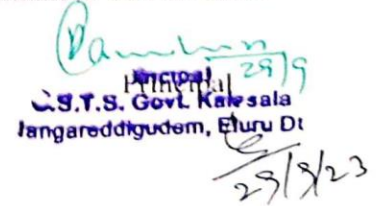 29/9
Principal
Principal
S.T.S. Govt. Kalasala
Jangareddigudem, Eluru Dt
29/9/23